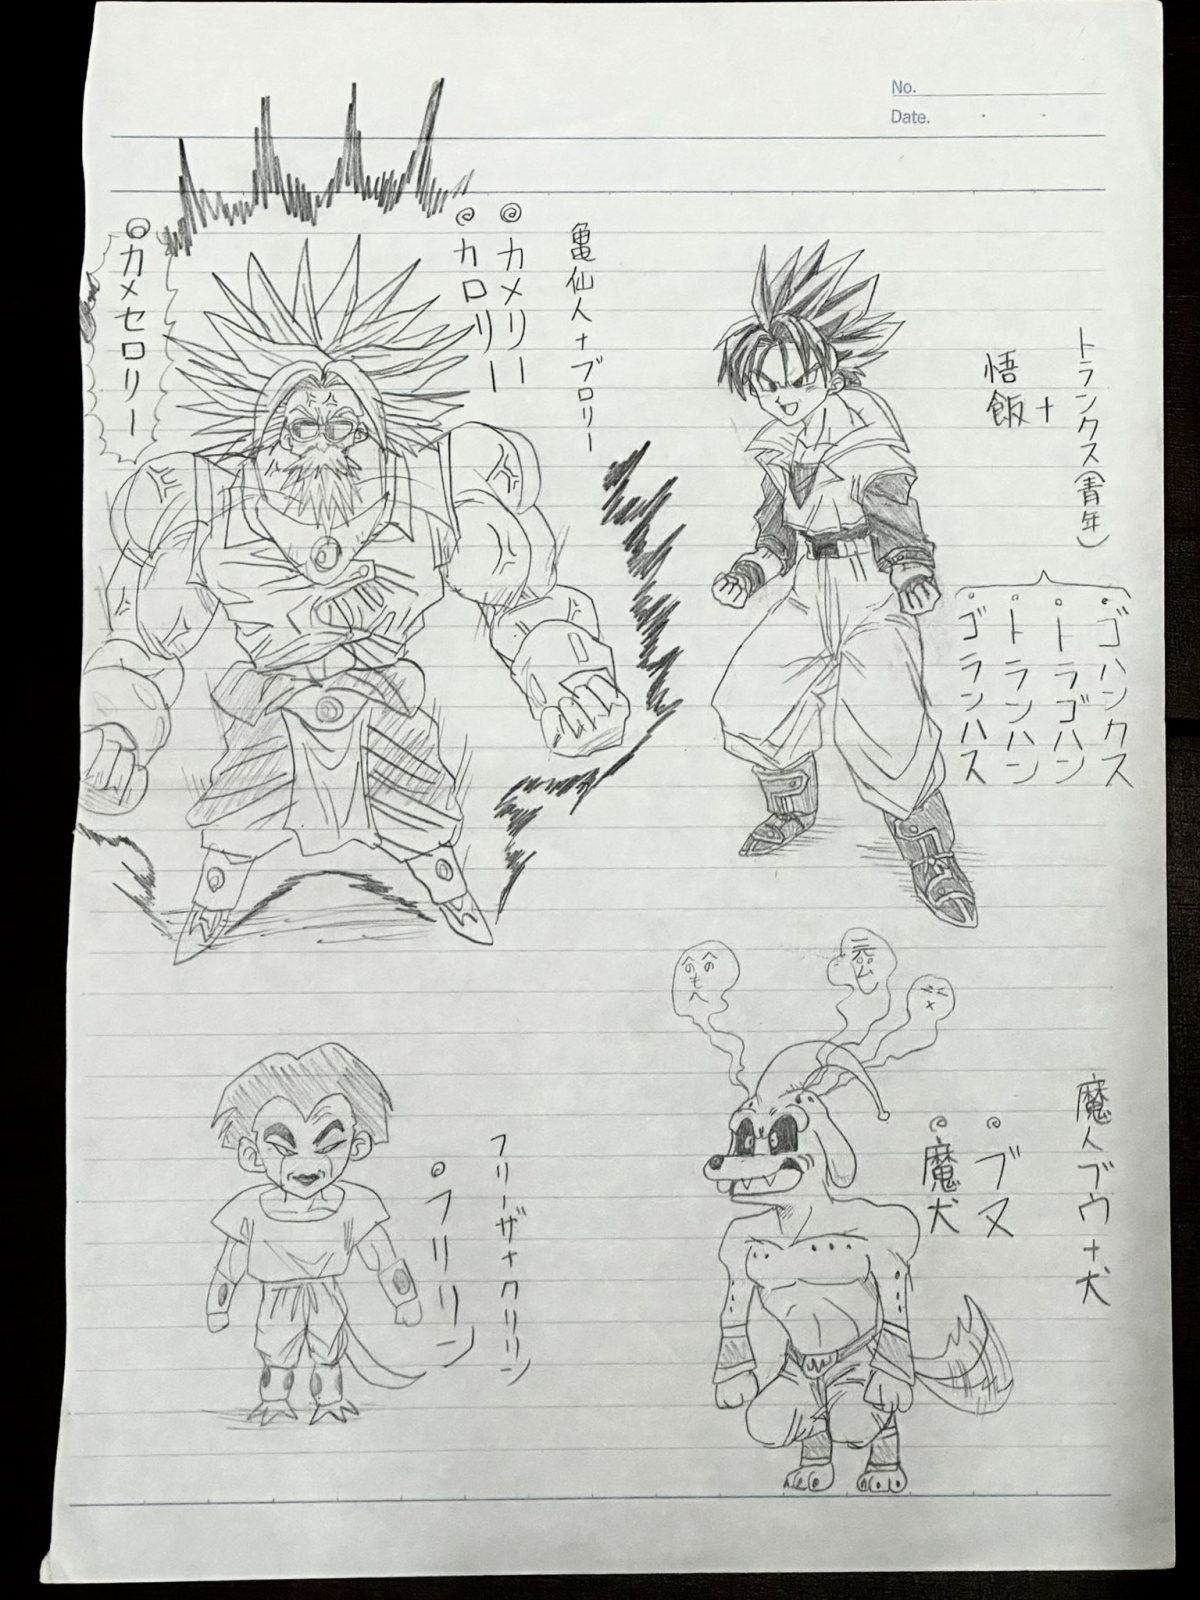 No.
Date.
トランクス(青年)
+
悟飯
。ゴハンクス
。トラゴハン
。トランハン
。ゴランハス
亀仙人+ブロリー
◎カメリー
◎カロリー
◎カメセロリー
魔人ブウ+犬
◎ブヌ
◎魔犬
へのへのもへ
フリーザ+クリリン
◎フリリン